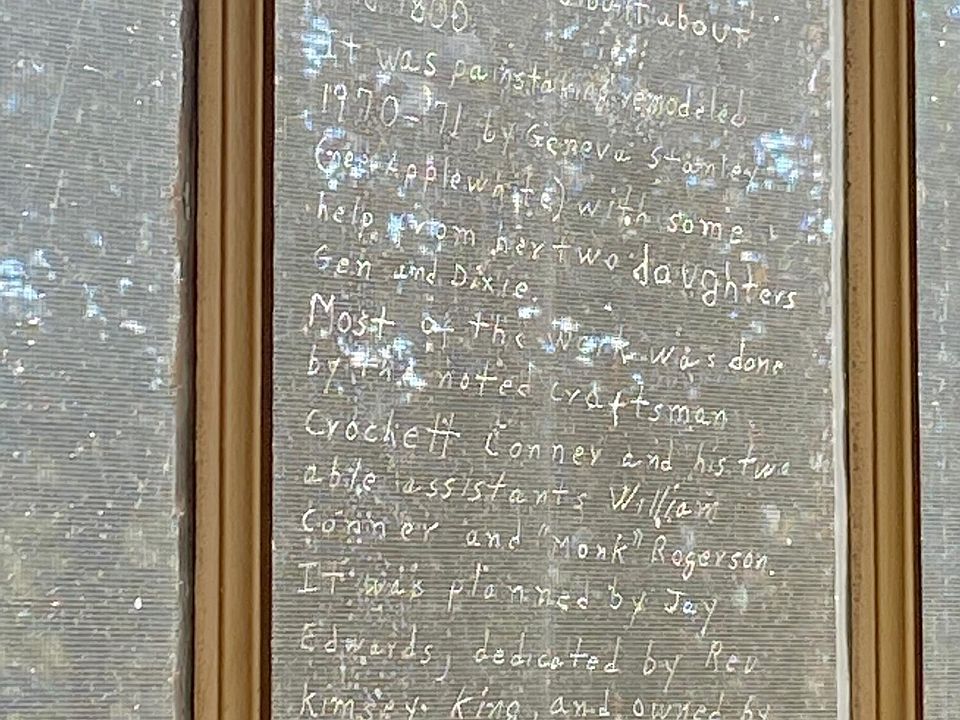 built about
1800.
It was painstaking remodeled
1970-71 by Geneva Stanley
(Gee Applewhite) with some
help from her two daughters
Gen and Dixie.
Most of the work was done
by the noted craftsman
Crockett Conner and his two
able assistants William
Conner and "Monk" Rogerson.
IT was planned by Jay
Edwards, dedicated by Rev
Kimsey King, and owned by